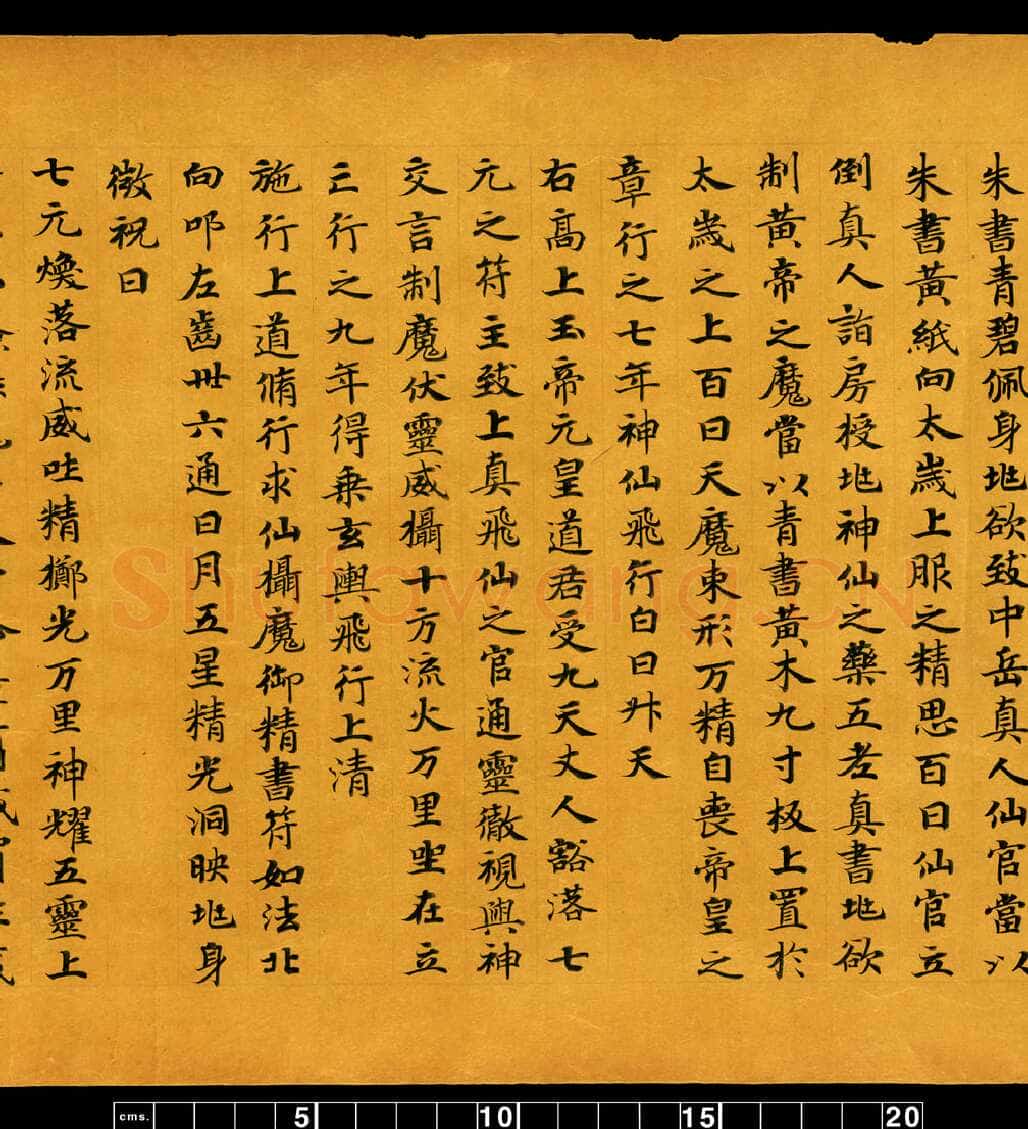 朱書青碧佩身也欲致中岳真人仙官當以
朱書黃紙向太歲上服之精思百日仙官立
倒真人詣房授也神仙之藥五老真書也欲
制黃帝之魔當以青書黃木九寸板上置於
太歲之上百日天魔束形万精自喪帝皇之
章行之七年神仙飛行白日升天
右高上玉帝元皇道君受九天丈人豁落七
元之符主致上真飛仙之官通靈徹視與神
交言制魔伏靈威攝十方流火万里坐在立
亡行之九年得乘玄輿飛行上清
施行上道脩行求仙攝魔御精書符如法北
向叩左齒卅六通日月五星精光洞映也身
微祝曰
七元煥落流威吐精擲光万里神耀五靈上
Shufawang.CN
cms. 5 10 15 20